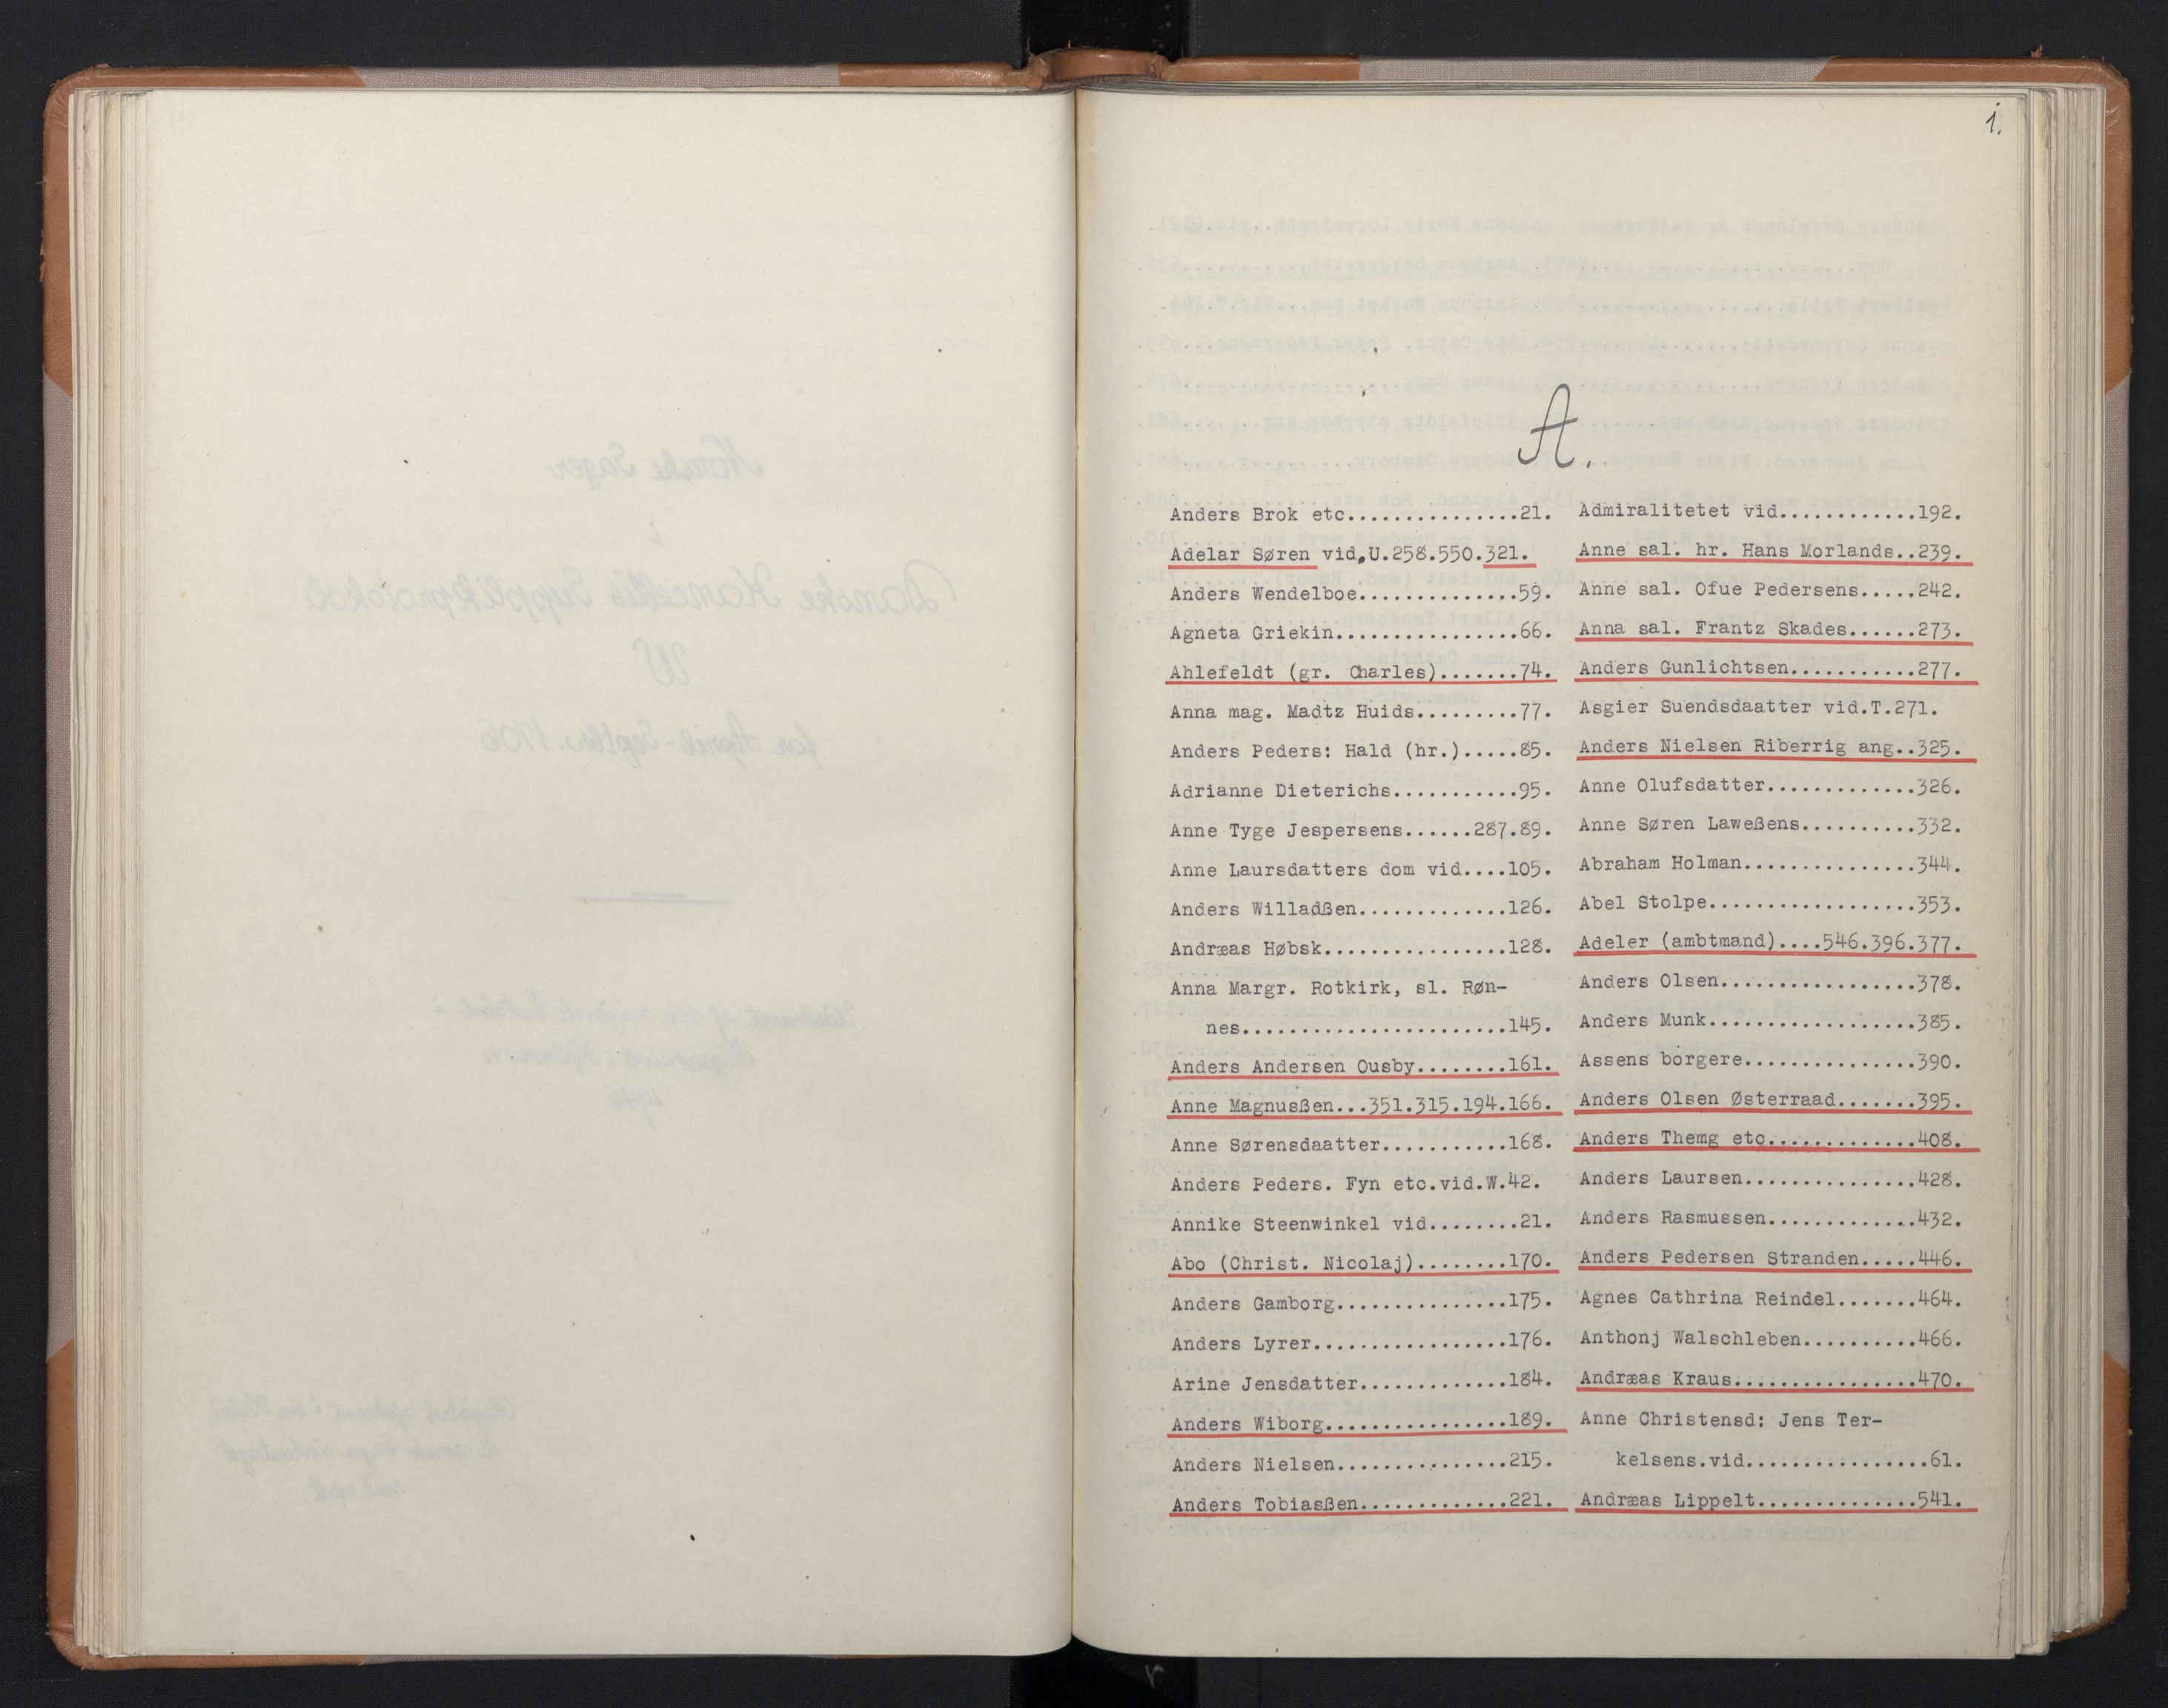 1.
A.
Anders Brok etc................21.
Adelar Søren vid.U.258.550.321.
Anders Wendelboe..............59.
Agneta Griekin................66.
Ahlefeldt (gr. Charles).......74.
Anna mag. Madtz Huids.........77.
Anders Peders: Hald (hr.).....85.
Adrianne Dieterichs...........95.
Anne Tyge Jespersens......287.89.
Anne Laursdatters dom vid....105.
Anders Willadßen.............126.
Andræas Høbsk................128.
Anna Margr. Rotkirk, sl. Røn-
nes.......................145.
Anders Andersen Ousby........161.
Anne Magnusßen...351.315.194.166.
Anne Sørensdaatter...........168.
Anders Peders. Fyn etc.vid.W.42.
Annike Steenwinkel vid........21.
Abo (Christ. Nicolaj)........170.
Anders Gamborg...............175.
Anders Lyrer.................176.
Arine Jensdatter.............184.
Anders Wiborg................189.
Anders Nielsen...............215.
Anders Tobiasßen.............221.
Admiralitetet vid............192.
Anne sal. hr. Hans Morlands..239.
Anne sal. Ofue Pedersens.....242.
Anna sal. Frantz Skades......273.
Anders Gunlichtsen...........277.
Asgier Suendsdaatter vid.T.271.
Anders Nielsen Riberrig ang..325.
Anne Olufsdatter.............326.
Anne Søren Laweßens..........332.
Abraham Holman...............344.
Abel Stolpe..................353.
Adeler (ambtmand)....546.396.377.
Anders Olsen.................378.
Anders Munk..................385.
Assens borgere...............390.
Anders Olsen Østerraad.......395.
Anders Themg etc.............408.
Anders Laursen...............428.
Anders Rasmussen.............432.
Anders Pedersen Stranden.....446.
Agnes Cathrina Reindel.......464.
Anthonj Walschleben..........466.
Andræas Kraus................470.
Anne Christensd: Jens Ter-
kelsens.vid................61.
Andræas Lippelt..............541.